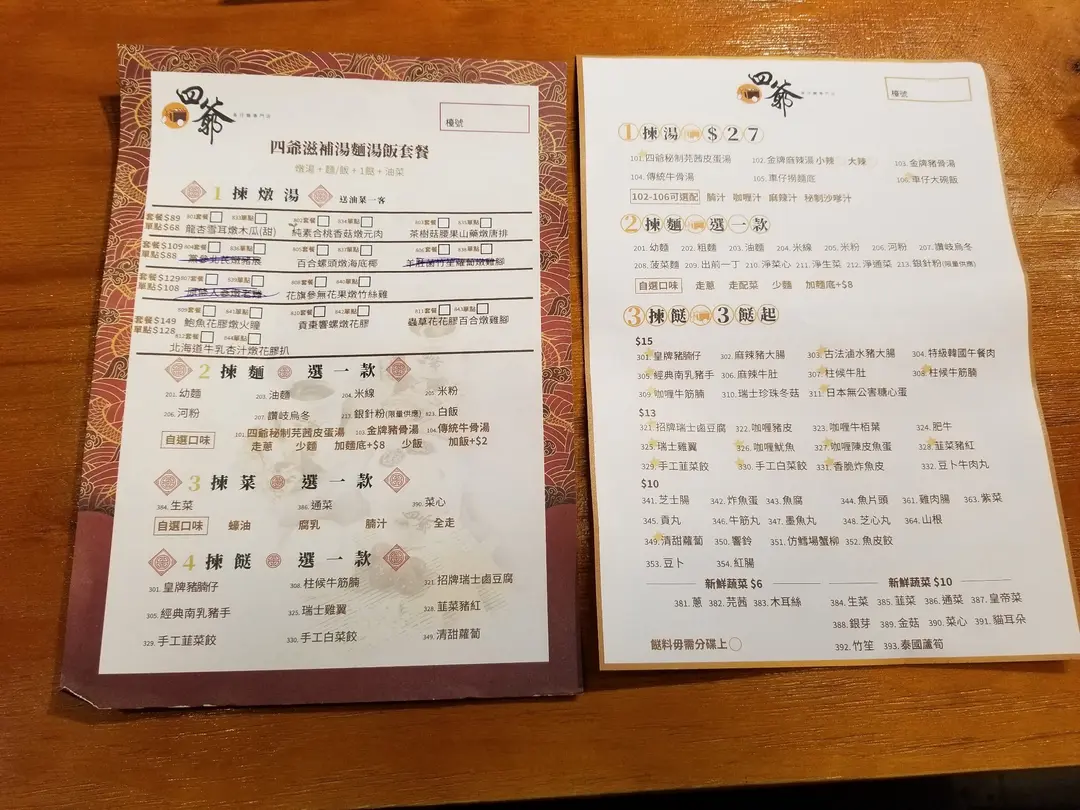 四爺
車仔麵專門店
檯號
四爺滋補湯麵湯飯套餐
燉湯 + 麵/飯 + 1餸 + 油菜
1 揀燉湯 送油菜一客
套餐$89 801套餐 833單點 802套餐 834單點 803套餐 835單點
單點$68 龍杏雪耳燉木瓜(甜) 純素合桃香菇燉元肉 茶樹菇腰果山藥燉唐排
套餐$109 804套餐 836單點 805套餐 837單點 806套餐 838單點
單點$88 黨參北芪燉豬𦟌 百合螺頭燉海底椰 羊肚菌竹笙蘿蔔燉雞腳
套餐$129 807套餐 839單點 808套餐 840單點
單點$108 原條人參燉老雞 花旗參無花果燉竹絲雞
809套餐 841單點 810套餐 842單點 811套餐 843單點
套餐$149 鮑魚花膠燉火瞳 貢棗響螺燉花膠 蟲草花花膠百合燉雞腳
單點$128 812套餐 844單點
北海道牛乳杏汁燉花膠扒
2 揀麵 選一款
201. 幼麵 203. 油麵 204. 米線 205. 米粉
206. 河粉 207. 讚岐烏冬 213. 銀針粉(限量供應) 821. 白飯
101. 四爺秘制芫茜皮蛋湯 103. 金牌豬骨湯 104. 傳統牛骨湯
自選口味 走蔥 少麵 加麵底+$8 少飯 加飯+$2
3 揀菜 選一款
384. 生菜 386. 通菜 390. 菜心
自選口味 蠔油 腐乳 腩汁 全走
4 揀餸 選一款
301. 皇牌豬腩仔 308. 柱候牛筋腩 321. 招牌瑞士鹵豆腐
305. 經典南乳豬手 325. 瑞士雞翼 328. 韮菜豬紅
329. 手工韮菜餃 330. 手工白菜餃 349. 清甜蘿蔔
四爺
檯號
1 揀湯 $27
101. 四爺秘制芫茜皮蛋湯 102. 金牌麻辣湯 小辣 大辣 103. 金牌豬骨湯
104. 傳統牛骨湯 105. 車仔撈麵底 106. 車仔大碗飯
102-106可選配 腩汁 咖喱汁 麻辣汁 秘制沙嗲汁
2 揀麵 選一款
201. 幼麵 202. 粗麵 203. 油麵 204. 米線 205. 米粉 206. 河粉 207. 讚岐烏冬
208. 菠菜麵 209. 出前一丁 210. 淨菜心 211. 淨生菜 212. 淨通菜 213. 銀針粉(限量供應)
自選口味 走蔥 走配菜 少麵 加麵底+$8
3 揀餸 3餸起
$15
301. 皇牌豬腩仔 302. 麻辣豬大腸 303. 古法滷水豬大腸 304. 特級韓國牛餐肉
305. 經典南乳豬手 306. 麻辣牛肚 307. 柱候牛肚 308. 柱候牛筋腩
309. 咖喱牛筋腩 310. 瑞士珍珠冬菇 311. 日本無公害糖心蛋
$13
321. 招牌瑞士鹵豆腐 322. 咖喱豬皮 323. 咖喱牛栢葉 324. 肥牛
325. 瑞士雞翼 326. 咖喱魷魚 327. 咖喱陳皮魚蛋 328. 韮菜豬紅
329. 手工韮菜餃 330. 手工白菜餃 331. 香脆炸魚皮 332. 豆卜牛肉丸
$10
341. 芝士腸 342. 炸魚蛋 343. 魚腐 344. 魚片頭 361. 雞肉腸 363. 紫菜
345. 貢丸 346. 牛筋丸 347. 墨魚丸 348. 芝心丸 364. 山根
349. 清甜蘿蔔 350. 響鈴 351. 仿鱈場蟹柳 352. 魚皮餃
353. 豆卜 354. 紅腸
新鮮蔬菜 $6 新鮮蔬菜 $10
381. 蔥 382. 芫茜 383. 木耳絲 384. 生菜 385. 韮菜 386. 通菜 387. 皇帝菜
388. 銀芽 389. 金菇 390. 菜心 391. 貓耳朵
餸料毋需分碟上 392. 竹笙 393. 泰國蘆筍